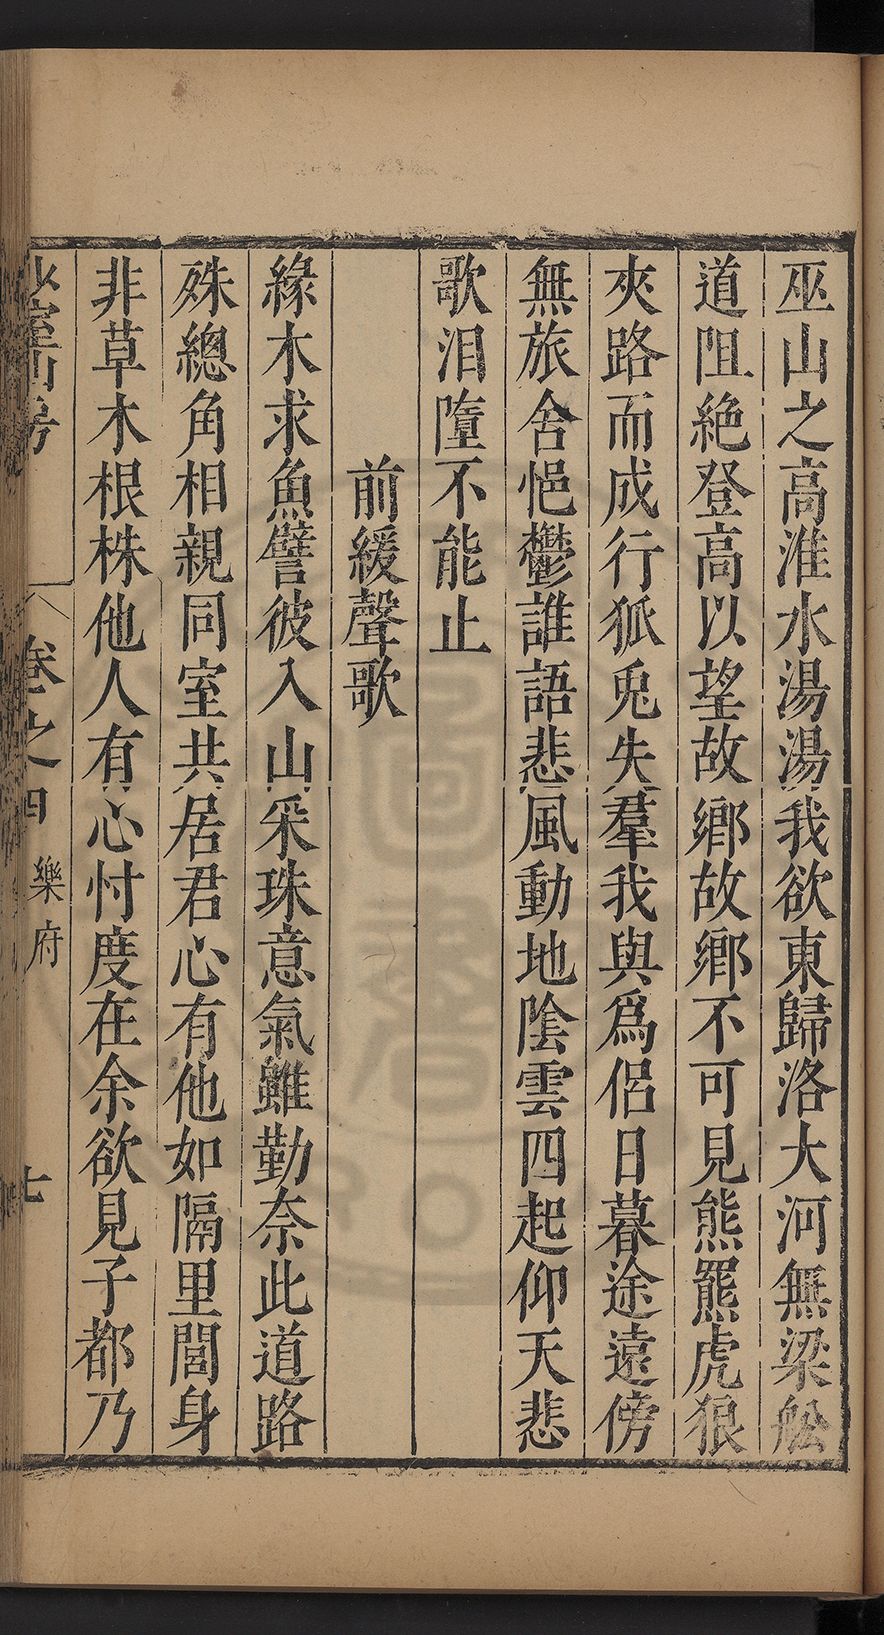 巫山之高淮水湯湯我欲東歸洛大河無梁舩
道阻絶登高以望故鄉故鄉不可見熊羆虎狼
夾路而成行狐兎失羣我與爲侶日暮途遠傍
無旅舍悒鬱誰語悲風動地陰雲四起仰天悲
歌泪墮不能止
前緩聲歌
緣木求魚譬彼入山采珠意氣雖勤奈此道路
殊總角相親同室共居君心有他如隔里閭身
非草木根株他人有心忖度在余欲見子都乃
少室山房
卷之四
樂府
七